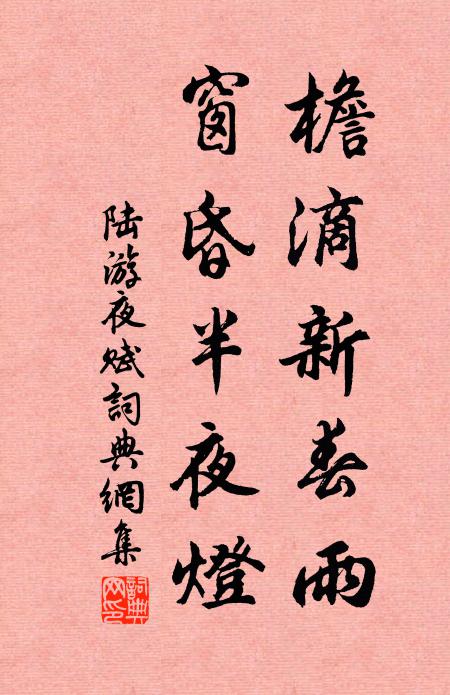 檐滴新春雨
窗昏半夜燈
陆游夜赋詞典網集
詞典网印